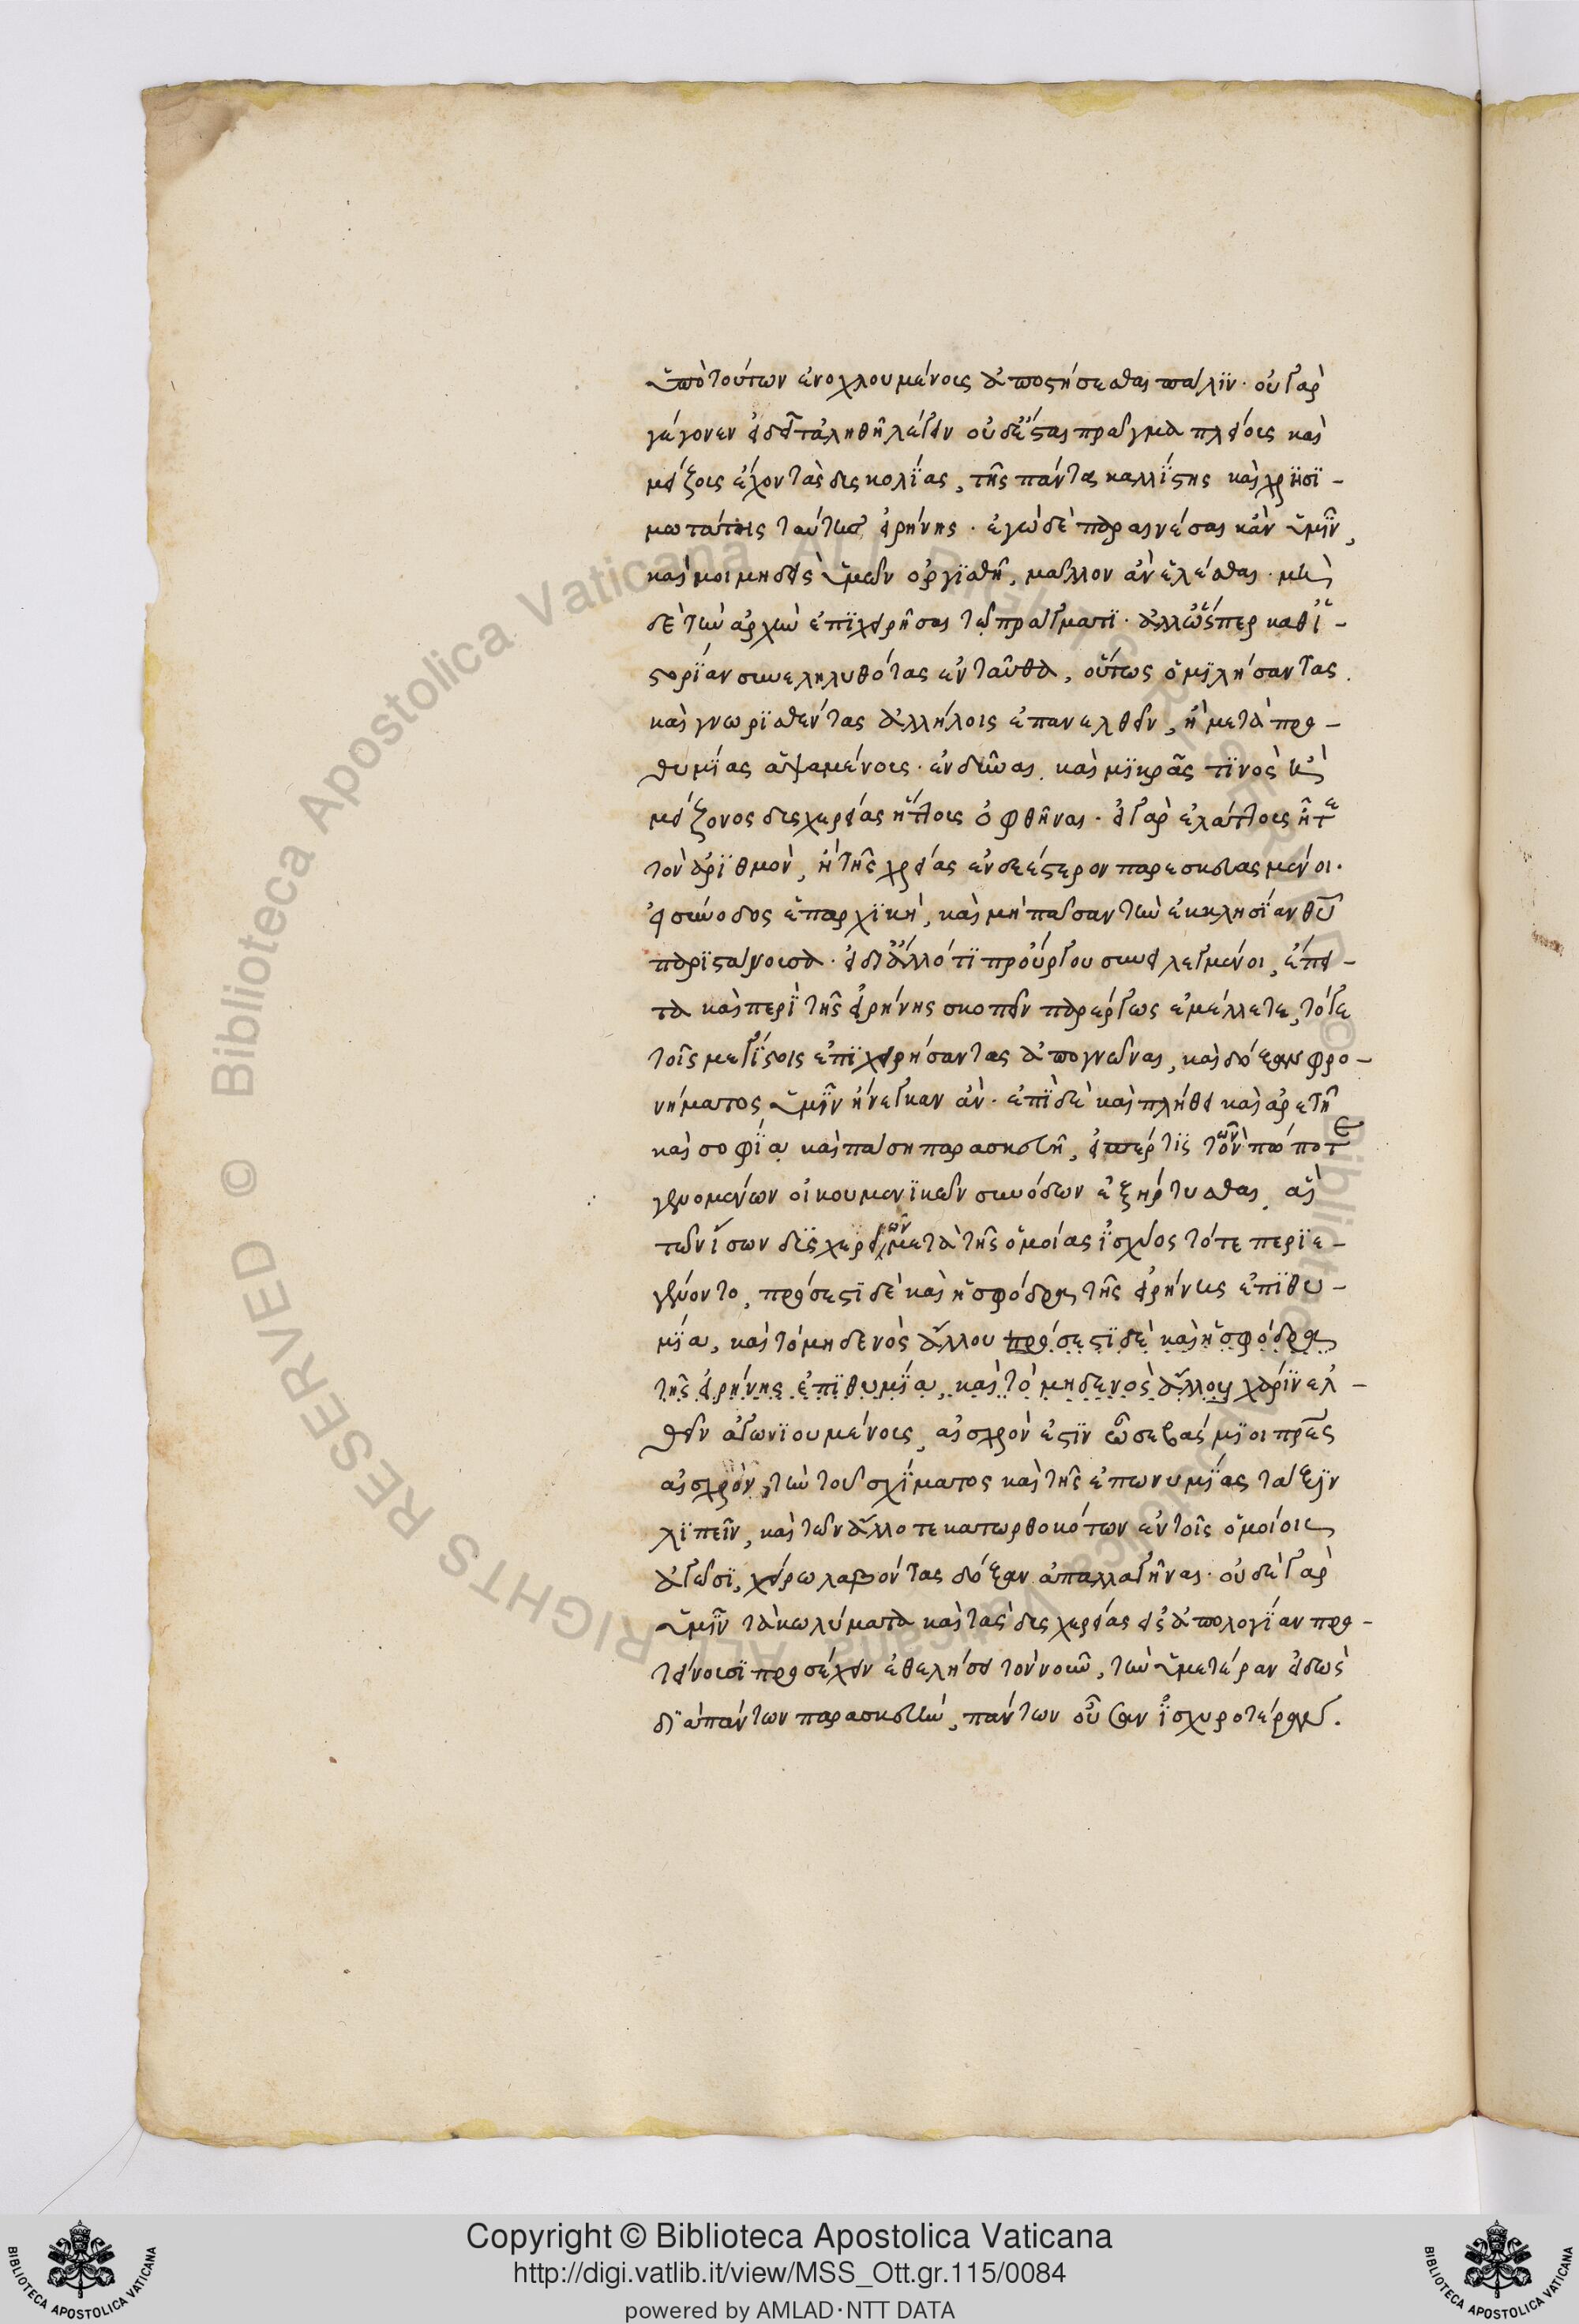 ὑπὸ τούτων ἐνοχλουμένοις ἀποστήσεσθαι πάλϊν· οὐ γὰρ
γέγονεν εἰ δεῖ τἀληθῆ λέγειν οὐδέν πω πρᾶγμα πλείοις καὶ
μείζοις ἔχον τὰς δυσκολίας, τῆς πάντα καλλίστης καὶ χρησϊ-
μωτάτης ταύτης εἰρήνης· ἐγὼ δὲ παραινέσαι κἂν ὑμῖν,
καί μοι μηδεὶς ὑμῶν ὀργϊσθῇ, μᾶλλον ἂν ἑλέσθαι· μὴ
δὲ τὴν ἀρχὴν ἐπϊχειρῆσαι τῷ πράγματϊ· ἀλλ' ὥσπερ καθ' ἱ-
στορΐαν συνεληλυθότας ἐνταῦθα, οὕτως ὁμϊλήσαντας
καὶ γνωρϊσθέντας ἀλλήλοις ἐπανελθεῖν, ἢ μετὰ προ-
θυμΐας ἁψαμένοις· ἐνδεῶσαι καὶ μϊκρᾶς τϊνὸς καὶ
μείζονος δυσχερείας ἥττοις ὀφθῆναι· εἰ γὰρ ἐλάττοις ἦτε
τὸν ἀρϊθμὸν, ἢ τῆς χρείας ἐνδεέστερον παρεσκευασμένοι·
ἢ σύνοδος ἐπαρχϊκὴ, καὶ μὴ πᾶσαν τὴν ἐκκλησΐαν θεοῦ
παρϊστάνουσα· εἰ δι' ἄλλό τϊ προὔργου συνειλεγμένοι, ἔπει-
τα καὶ περὶ τῆς εἰρήνης σκοπεῖν παρέργως ἐμέλλετε, τό γε
τοῖς μεγΐστοις ἐπϊχειρήσαντας ἀπογνῶναι, καὶ δόξαν φρο-
νήματος ὑμῖν ἤνεγκαν ἄν· ἐπεὶ δὲ καὶ πλήθει καὶ ἀρετῇ
καὶ σοφΐᾳ καὶ πάσῃ παρασκευῇ, εἴπέρ τϊς τῶν πώποτε
γενομένων οἰκουμενϊκῶν συνόδων ἐξήρτυσθαι, αἳ
τῶν ἴσων δυσχερειῶν μετὰ τῆς ὁμοίας ἰσχύος τότε περϊε-
γένοντο, πρόσεστϊ δὲ καὶ ἡ σφόδρα τῆς εἰρήνης ἐπϊθυ-
μΐα, καὶ τὸ μηδενὸς ἄλλου πρόσεστϊ δὲ καὶ ἡ σφόδρα
τῆς εἰρήνης ἐπϊθυμΐα, καὶ τὸ μηδενὸς ἄλλου χάρϊν ἐλ-
θεῖν ἀγωνϊουμένοις, αἰσχρόν ἐστϊν ὦ σεβάσμϊοι πατέρες
αἰσχρὸν, τὴν τοῦ σχήματος καὶ τῆς ἐπωνυμΐας τάξϊν
λϊπεῖν, καὶ τῶν ἄλλοτε κατωρθοκότων ἐν τοῖς ὁμοίοις
ἀγῶσϊ, χείρω λαβόντας δόξαν ἀπαλλαγῆναι· οὐδὲ γὰρ
ὑμῖν τὰ κωλύματα καὶ τὰς δυσχερείας εἰς ἀπολογΐαν προ-
τείνουσϊ προσέχειν ἐθελήσει τὸν νοῦν, τὴν ὑμετέραν εἰδὼς
δι' ἁπάντων παρασκευὴν, πάντων οὖσαν ἰσχυροτέραν.
Copyright © Biblioteca Apostolica Vaticana
http://digi.vatlib.it/view/MSS_Ott.gr.115/0084
powered by AMLAD·NTT DATA
BIBLIOTECA APOSTOLICA VATICANA
BIBLIOTECA APOSTOLICA VATICANA